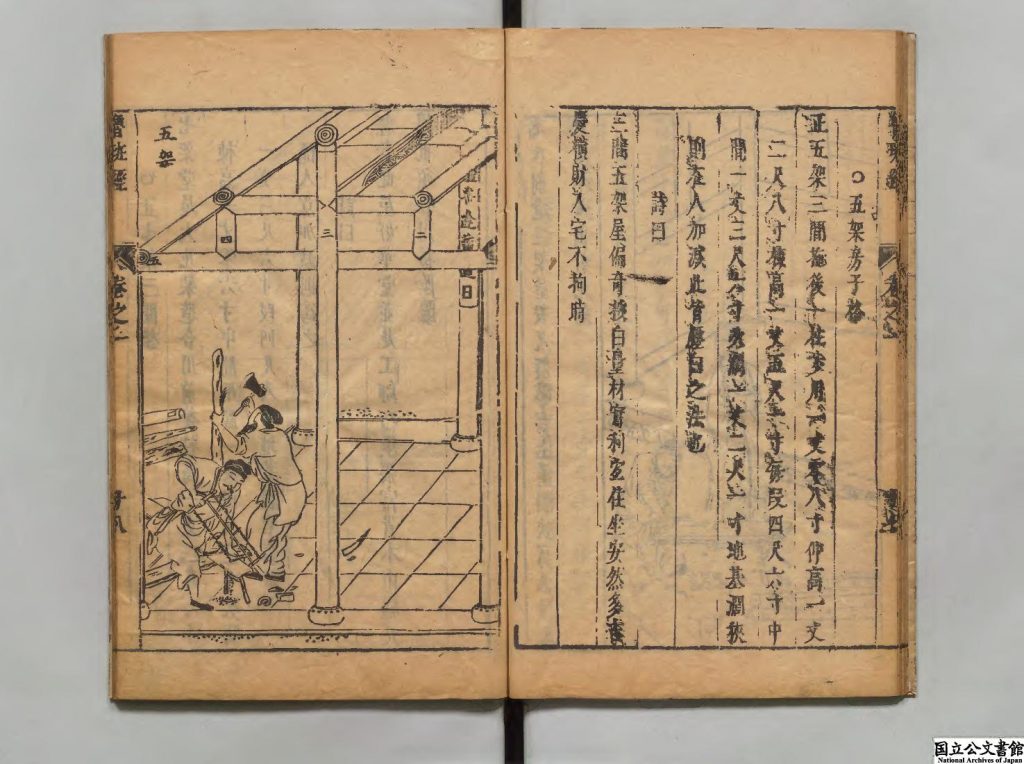 ○五架房子格
正五架三間拖後一柱步用一丈零八寸仰高一丈
二尺八寸棟高一丈五尺一寸每段四尺六寸中
間一丈三尺六寸次闊一丈二尺一寸地基闊狹
則在人加減此皆壓白之法也
詩曰
三間五架屋偏奇按白量材實利宜住坐安然多吉
慶橫財入宅不拘時
五架
二
三
四
五
魯班經
卷之二
十八
国立公文書館
National Archives of Japan